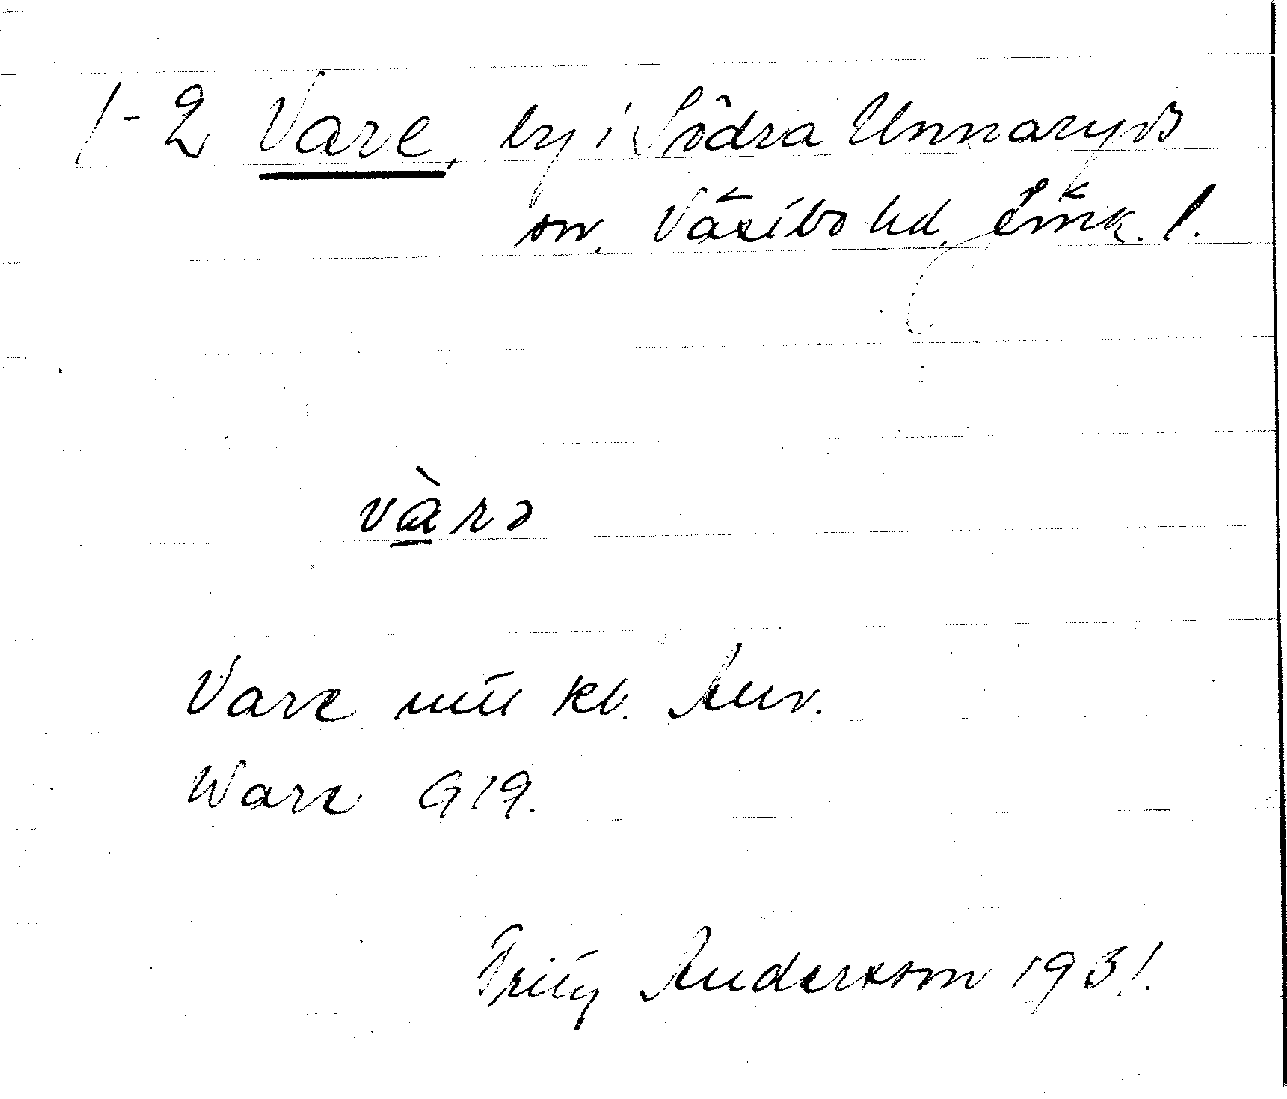 1-2 Vare, by i Södra Unnaryds
sn. Västbo hd, Jönk. l.
vàrə
Vare mtl kb. Anv.
Ware G19.
Fritz Andersson 1931.